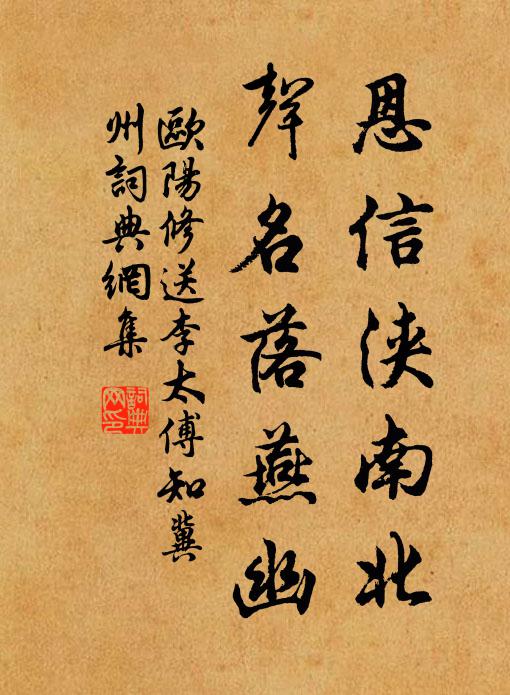 恩信浹南北
聲名落燕幽
歐陽修送李太傅知冀
州詞典網集
詞典網印